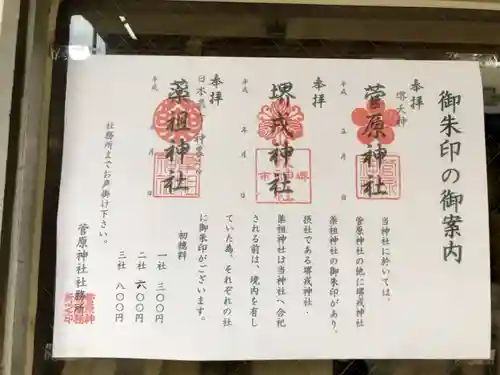 御朱印の御案内
奉拝
堺天神
菅原神社
平成 年 月 日
奉拝
堺戎神社
平成 年 月 日
奉拝
薬祖神社
平成 年 月 日
当神社に於いては、
菅原神社の他に堺戎神社
薬祖神社の御朱印があり、
摂社である堺戎神社・
薬祖神社は当神社へ合祀
される前は、境内を有し
ていた為、それぞれの社
に御朱印がございます。
初穂料
一社 三〇〇円
二社 六〇〇円
三社 八〇〇円
社務所までお声掛け下さい。
菅原神社社務所